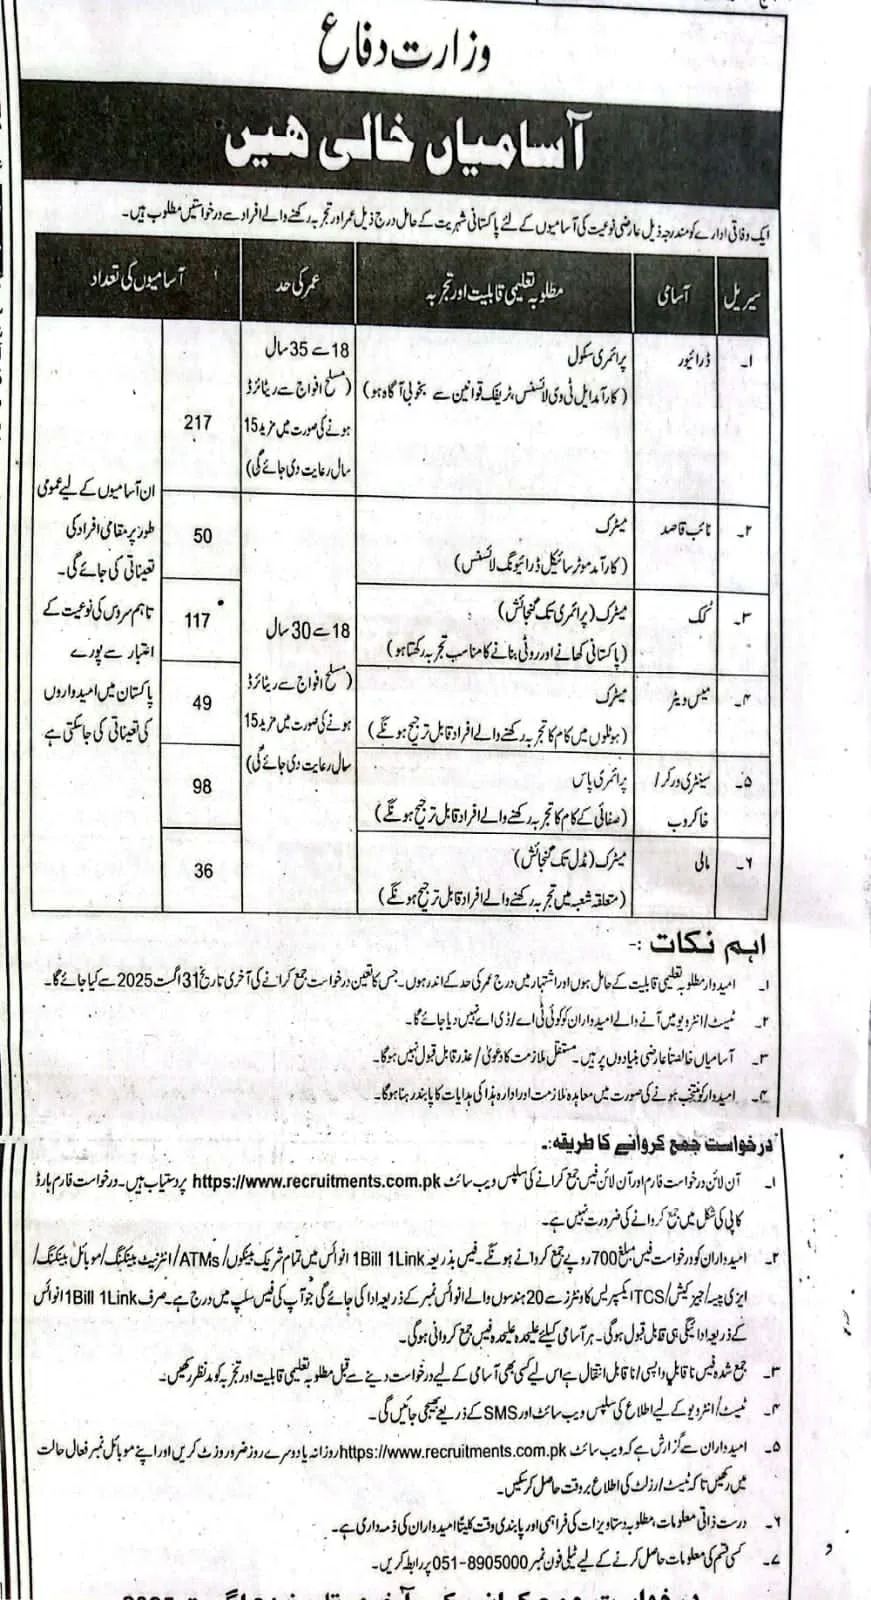 وزارت دفاع
آسامیاں خالی ھیں
ایک وفاقی ادارے کو مندرجہ ذیل عارضی نوعیت کی آسامیوں کے لئے پاکستانی شہریت کے حامل درج ذیل عمر اور تجربہ رکھنے والے افراد سے درخواستیں مطلوب ہیں۔
سیریل
آسامی
مطلوبہ تعلیمی قابلیت اور تجربہ
عمر کی حد
آسامیوں کی تعداد
۱۔
ڈرائیور
پرائمری سکول
(کارآمد ایل ٹی وی لائسنس، ٹریفک قوانین سے بخوبی آگاہ ہو)
18 سے 35 سال
(مسلح افواج سے ریٹائرڈ
ہونے کی صورت میں مزید 15
سال رعایت دی جائے گی)
217
۲۔
نائب قاصد
میٹرک
(کارآمد موٹر سائیکل ڈرائیونگ لائسنس)
50
۳۔
کک
میٹرک (پرائمری تک گنجائش)
(پاکستانی کھانے اور روٹی بنانے کا مناسب تجربہ رکھتا ہو)
117
۴۔
میس ویٹر
میٹرک
(ہوٹلوں میں کام کا تجربہ رکھنے والے افراد قابل ترجیح ہونگے)
49
۵۔
سینٹری ورکر/
خاکروب
پرائمری پاس
(صفائی کے کام کا تجربہ رکھنے والے افراد قابل ترجیح ہونگے)
98
۶۔
مالی
میٹرک (مڈل تک گنجائش)
(متعلقہ شعبہ میں تجربہ رکھنے والے افراد قابل ترجیح ہونگے)
36
18 سے 30 سال
(مسلح افواج سے ریٹائرڈ
ہونے کی صورت میں مزید 15
سال رعایت دی جائے گی)
ان آسامیوں کے لیے عمومی
طور پر مقامی افراد کی
تعیناتی کی جائے گی۔
تاہم سروس کی نوعیت کے
اعتبار سے پورے
پاکستان میں امیدواروں
کی تعیناتی کی جاسکتی ہے
اہم نکات :-
۱۔ امیدوار مطلوبہ تعلیمی قابلیت کے حامل ہوں اور اشتہار میں درج عمر کی حد کے اندر ہوں۔ جس کا تعین درخواست جمع کرانے کی آخری تاریخ 31 اگست 2025 سے کیا جائے گا۔
۲۔ ٹیسٹ/انٹرویو میں آنے والے امیدواران کو کوئی ٹی اے/ڈی اے نہیں دیا جائے گا۔
۳۔ آسامیاں خالصتاً عارضی بنیادوں پر ہیں۔ مستقل ملازمت کا دعویٰ/عذر قابل قبول نہیں ہوگا۔
۴۔ امیدوار کو منتخب ہونے کی صورت میں معاہدہ ملازمت اور ادارہ ہذا کی ہدایات کا پابند رہنا ہوگا۔
درخواست جمع کروانے کا طریقہ:۔
۱۔ آن لائن درخواست فارم اور آن لائن فیس جمع کرانے کی سلپس ویب سائٹ https://www.recruitments.com.pk پر دستیاب ہیں۔ درخواست فارم ہارڈ
کاپی کی شکل میں جمع کروانے کی ضرورت نہیں ہے۔
۲۔ امیدواران کو درخواست فیس مبلغ 700 روپے جمع کروانے ہونگے۔ فیس بذریعہ 1Bill 1Link انوائس میں تمام شریک بینکوں/ATMs/انٹرنیٹ بینکنگ/موبائل بینکنگ/
ایزی پیسہ/جیز کیش/TCS ایکسپریس کاونٹرز سے 20 ہندسوں والے انوائس نمبر کے ذریعہ ادا کی جائے گی جو آپ کی فیس سلپ میں درج ہے۔ صرف 1Bill 1Link انوائس
کے ذریعہ ادائیگی ہی قابل قبول ہوگی۔ ہر آسامی کیلئے علیحدہ علیحدہ فیس جمع کروانی ہوگی۔
۳۔ جمع شدہ فیس ناقابل واپسی/ناقابل انتقال ہے اس لیے کسی بھی آسامی کے لیے درخواست دینے سے قبل مطلوبہ تعلیمی قابلیت اور تجربہ کو مدنظر رکھیں۔
۴۔ ٹیسٹ/انٹرویو کے لیے اطلاع کی سلپس ویب سائٹ اور SMS کے ذریعے بھیجی جائیں گی۔
۵۔ امیدواران سے گزارش ہے کہ ویب سائٹ https://www.recruitments.com.pk روزانہ یا دوسرے روز ضرور وزٹ کریں اور اپنے موبائل نمبر فعال حالت
میں رکھیں تاکہ ٹیسٹ/رزلٹ کی اطلاع بروقت حاصل کرسکیں۔
۶۔ درست ذاتی معلومات، مطلوبہ دستاویزات کی فراہمی اور پابندی وقت کلیتاً امیدواران کی ذمہ داری ہے۔
۷۔ کسی قسم کی معلومات حاصل کرنے کے لیے ٹیلی فون نمبر 051-8905000 پر رابطہ کریں۔